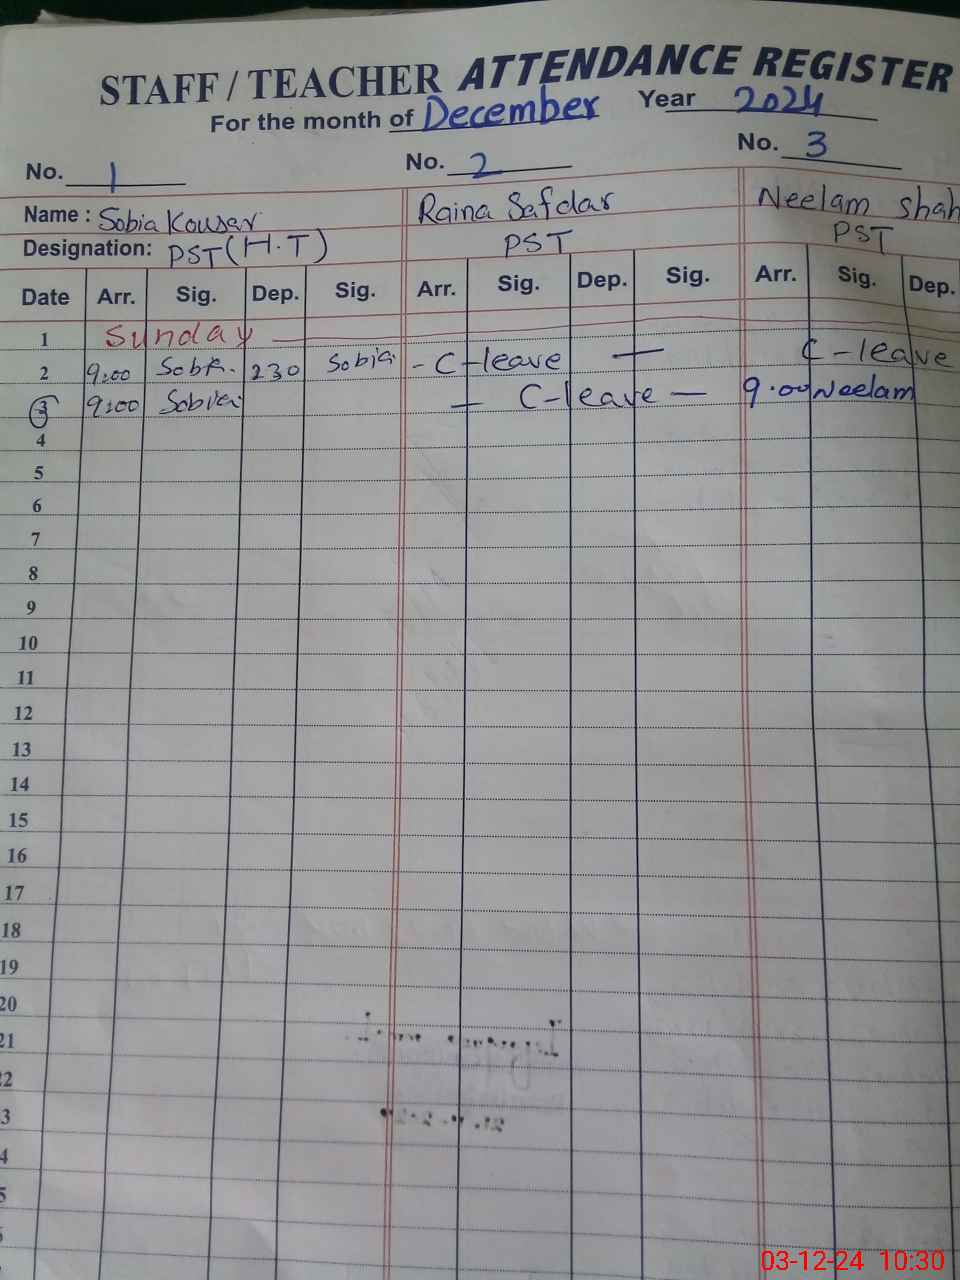 STAFF / TEACHER ATTENDANCE REGISTER
For the month of December Year 2024
No. 1 No. 2 No. 3
Name : Sobia Kousar Raina Safdar Neelam Shah
Designation: PST (H.T) PST PST
Date Arr. Sig. Dep. Sig. Arr. Sig. Dep. Sig. Arr. Sig. Dep.
1 Sunday
2 9:00 230 Sobia - C-leave — C-leave
3 9:00 Sobia — C-leave — 9.00 Neelam
4
5
6
7
8
9
10
11
12
13
14
15
16
17
18
19
20
21
2
3
4
5
03-12-24 10:30